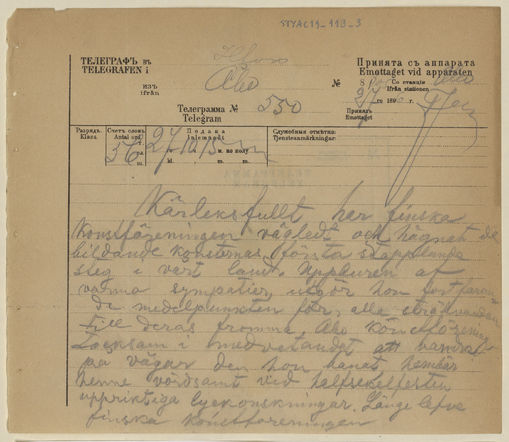 ТЕЛЕГРАФЪ въ
TELEGRAFEN i
H:fors
ИЗЪ
ifrån
Åbo
Телеграмма № 550
Telegram
Принята съ аппарата
Emottaget vid apparaten
№ Со станціи Åbo
ifrån stationen
27 го 189 г.
Принялъ
Emottaget
Разрядъ.
Klass.
Счетъ словъ
Antal ord
56
Подана
Inlemnadt
27 м. по полу
Служебныя отмѣтки:
Tjensteanmärkningar:
Kärleksfullt har finska
konstföreningen vägledt och hägnat de
bildande konsternas första stapplande
steg i vårt land. Uppburen af
varma sympatier, utgör hon fortfaran
de medelpunkten för alla sträfvanden
till deras fromma. Åbo konstförening
tacksam i medvetandet att vandra
på vägar den hon banat hembär
henne vördsamt vid halfsekelfesten
uppriktiga lyckönskningar. Länge lefve
finska konstföreningen